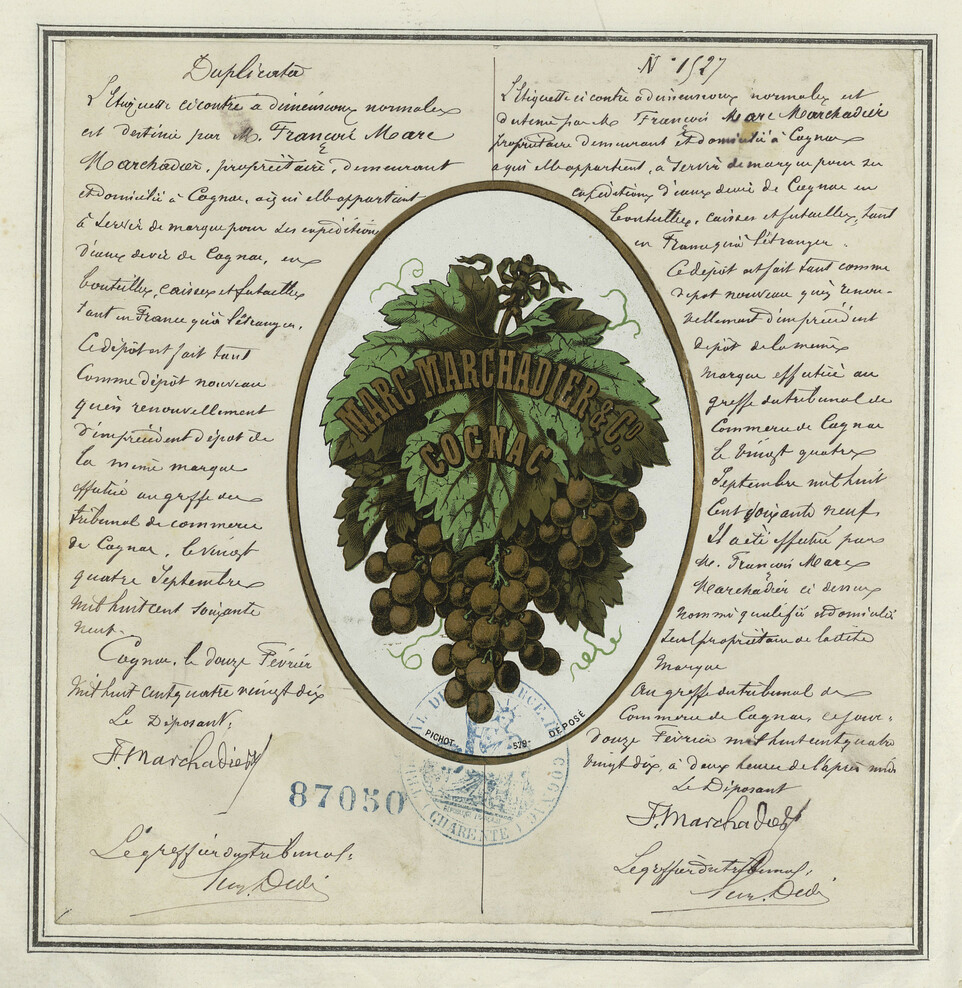 Duplicata
L'Etiquette ci contre à dimensions normales
est destinée par M. François Marc
Marchadier, propriétaire, demeurant
et domicilié à Cognac, à qui elle appartient
à servir de marque pour ses expéditions
d'eaux de vie de Cognac, en
bouteilles, caisses et futailles
tant en France qu'à l'étranger.
Ce dépôt est fait tant
comme dépôt nouveau
qu'en renouvellement
d'un précédent dépôt de
la même marque
effectué au greffe du
tribunal de commerce
de Cognac, le vingt
quatre Septembre
mil huit cent soixante
neuf.
Cognac, le douze Février
mil huit cent quatre vingt dix
Le Déposant,
F. Marchadier
87050
Le greffier du tribunal,
N° 1527
L'Etiquette ci contre à dimensions normales est
par M François Marc Marchadier
propriétaire demeurant et domicilié à Cognac
à qui elle appartient, à servir de marque pour ses
expéditions d'eaux de vie de Cognac en
bouteilles, caisses et futailles, tant
en France qu'à l'étranger.
Ce dépôt est fait tant comme
dépôt nouveau qu'en renou-
vellement d'un précédent
dépôt de la même
marque effectué au
greffe du tribunal de
Commerce de Cognac
le vingt quatre
Septembre mil huit
cent soixante neuf
Il a été effectué par
M. François Marc
Marchadier ci dessus
nommé qualifié et domicilié
seul propriétaire de la dite
marque
Au greffe du tribunal de
Commerce de Cognac, ce jour
douze Février mil huit cent quatre
vingt dix, à deux heures de l'après midi
Le Déposant
F. Marchadier
Le greffier du tribunal,
MARC MARCHADIER & Co.
COGNAC
PICHOT
DÉPOSÉ
COGNAC (CHARENTE)